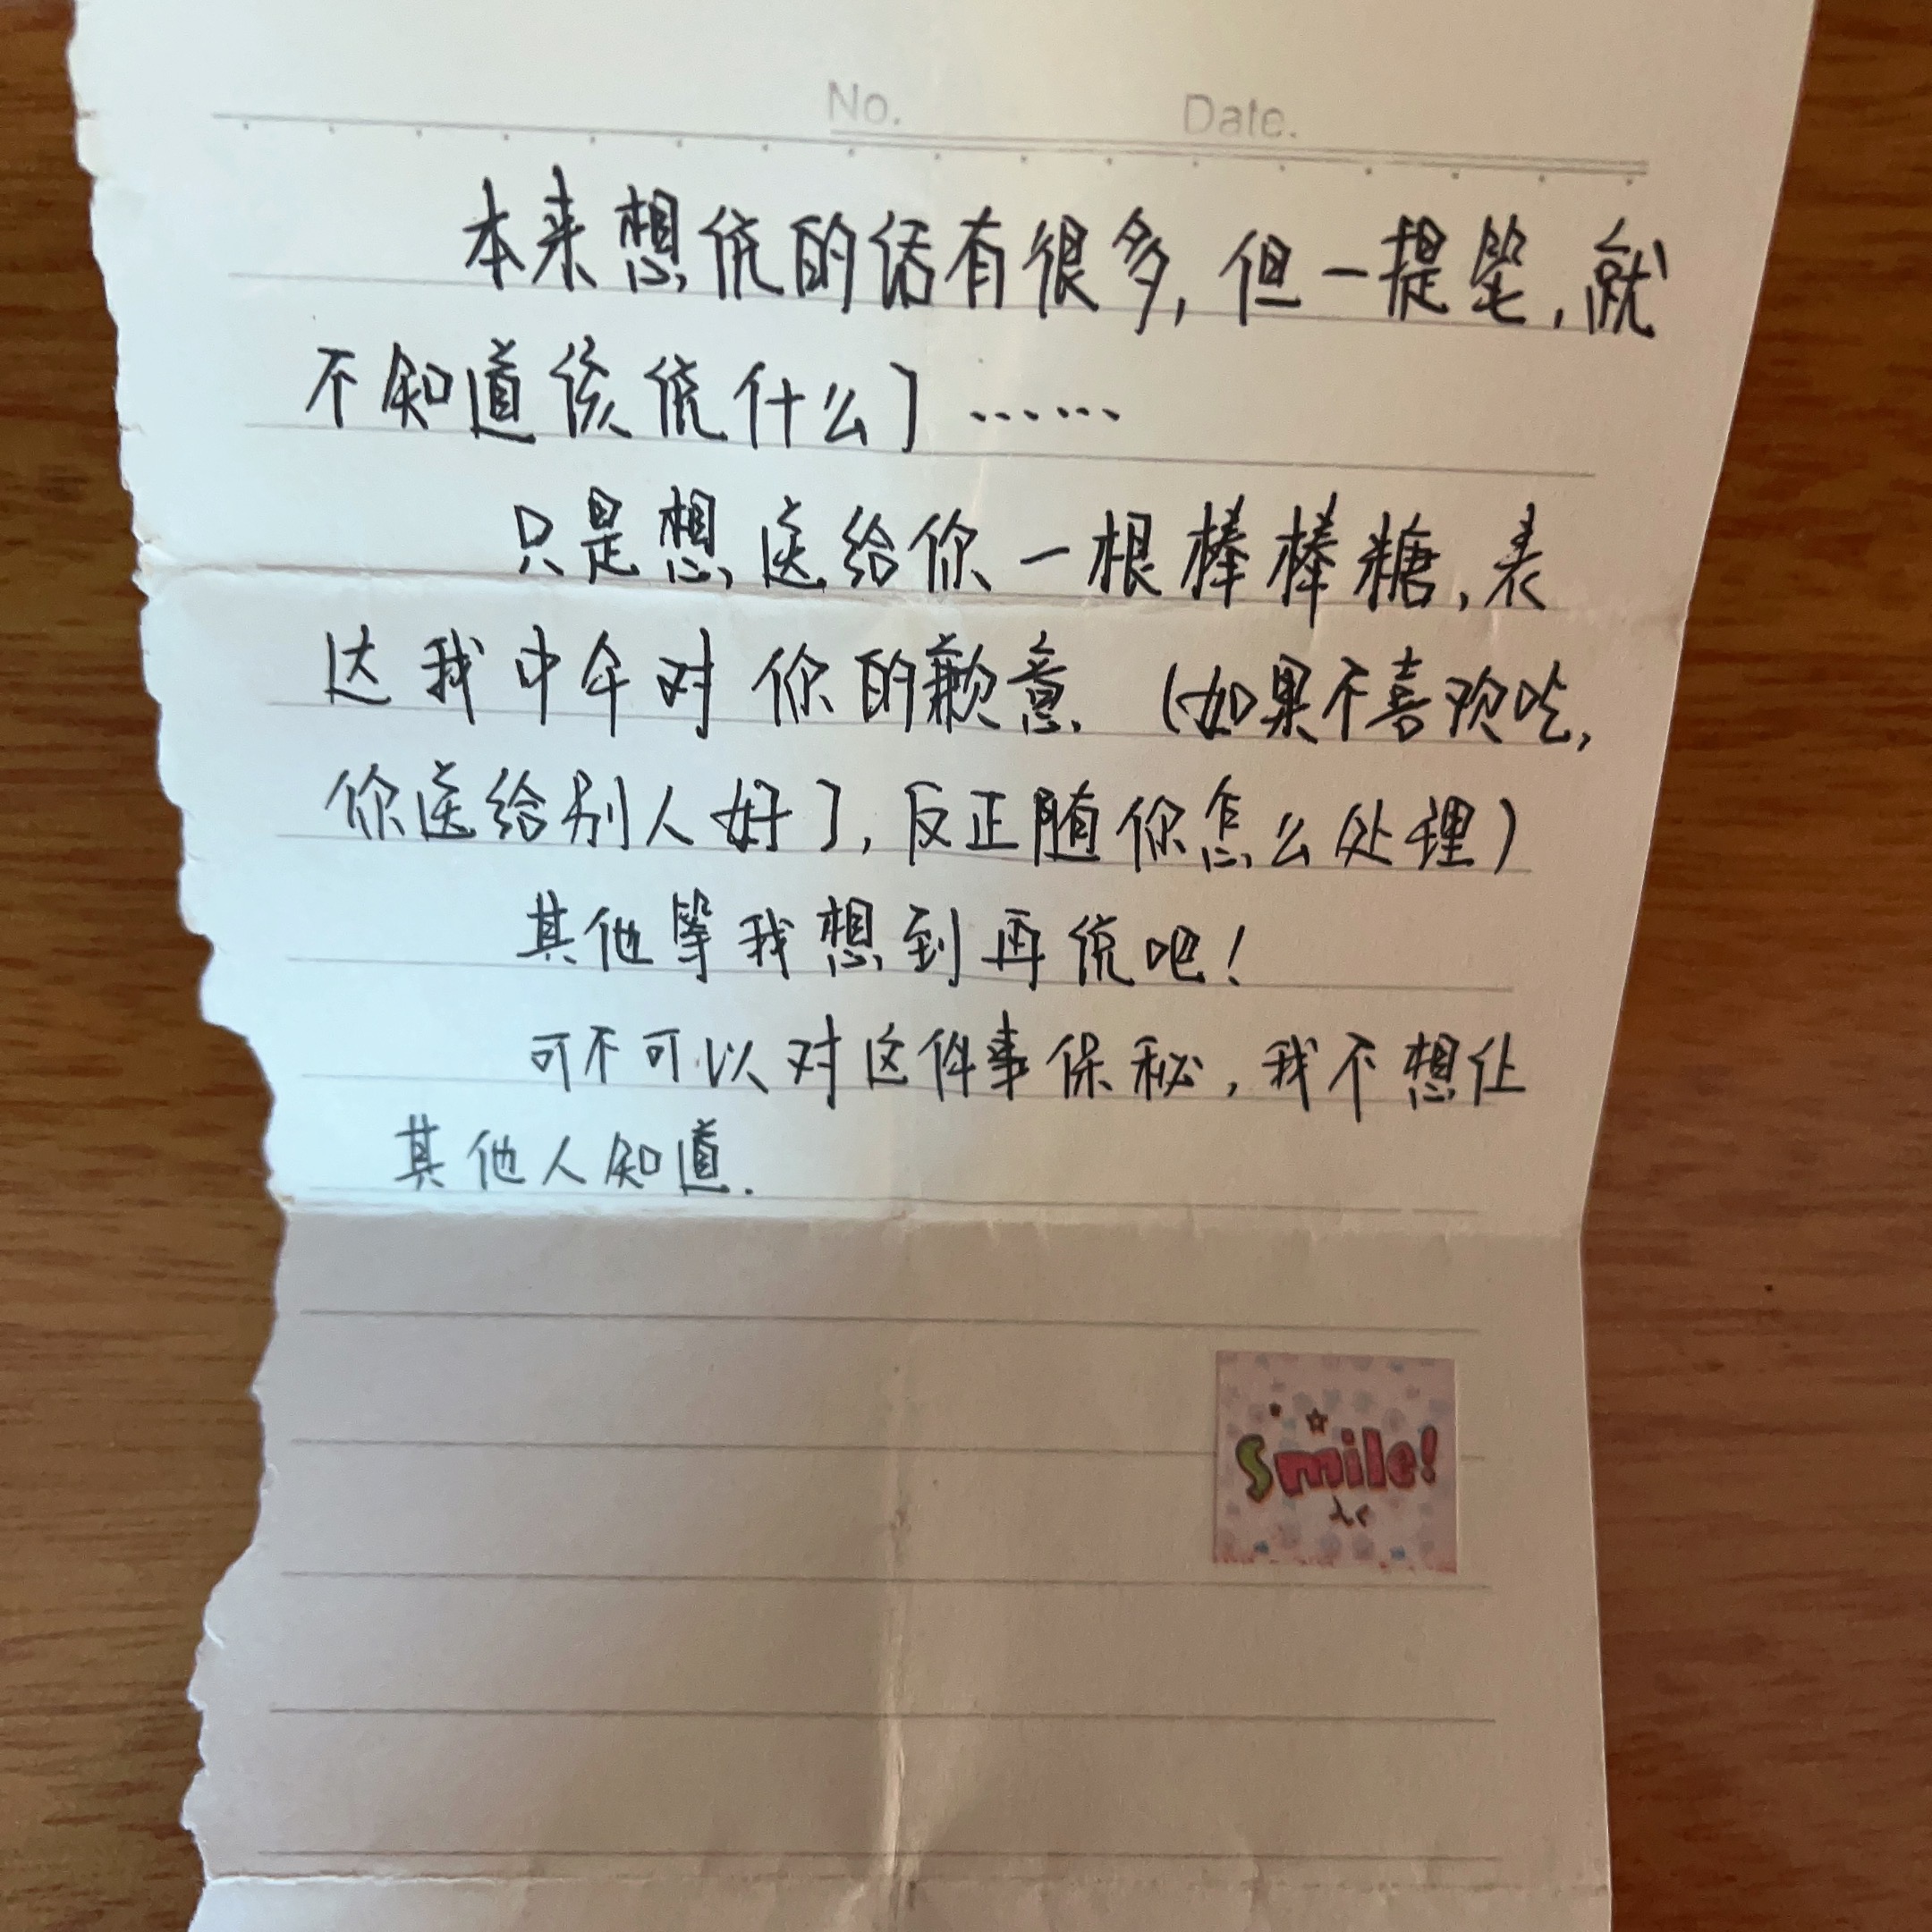 No. Date.
本来想说的话有很多,但一提笔,就
不知道该说什么了……
只是想送给你一根棒棒糖,表
达我中午对你的歉意.(如果不喜欢吃,
你送给别人好了,反正随你怎么处理)
其他等我想到再说吧!
可不可以对这件事保秘,我不想让
其他人知道.
Smile!